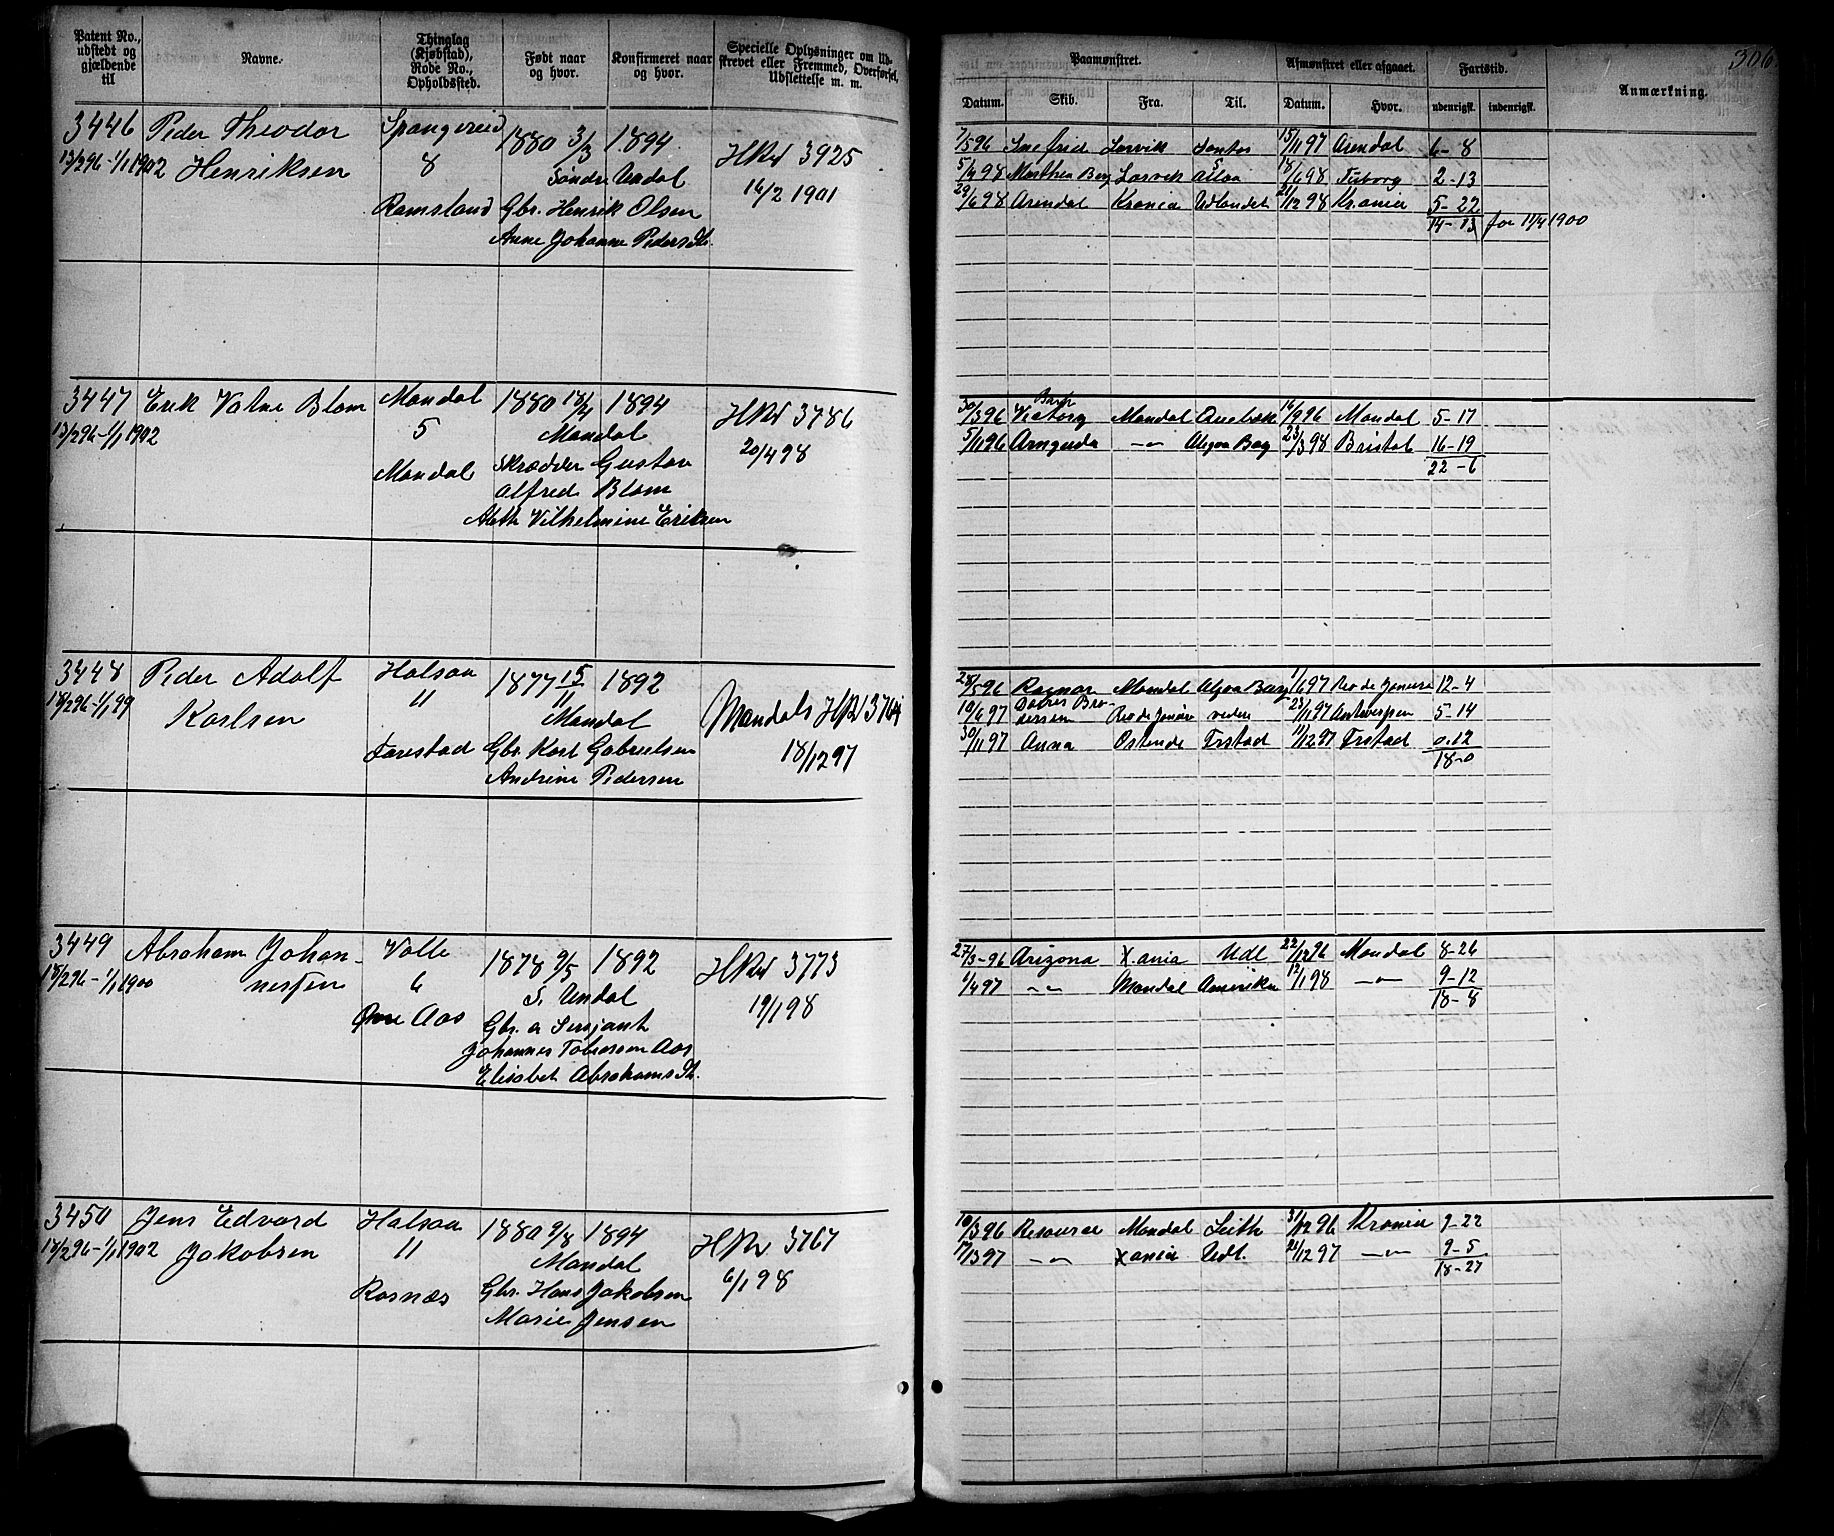 Patent No., udstedt og gjældende til
Navne.
Thinglag (Kjøbstad), Rode No., Opholdssted.
Født naar og hvor.
Konfirmeret naar og hvor.
Specielle Oplysninger om Udskrevet eller Fremmed, Overførsel, Udslettelse m. m.
Paamønstret.
Afmønstret eller afgaaet.
Fartstid.
Anmærkning.
306
Datum. Skib. Fra. Til. Datum. Hvor. udenrigsk. indenrigsk.
3446 Peder Theodor Spangereid 1880 3/3 1894
13/2 96 - 1/1 1902 Henriksen 8 Søndre Undal HRul 3925
16/2 1901
Ramsland Gbr. Henrik Olsen
Anne Johanne Pedersdt.
7/5 96 Larvik Santos 15/11 97 Arendal 6-8
5/4 98 Marthea Berg Larvik Alloa 18/6 98 2-13
29/6 98 Arendal Krania Udlandet 21/12 98 Krania 5-22
14-13 før 11/4 1900
3447 Erik Valne Blom Mandal 1880 18/4 1894 HRul 3786
13/2 96 - 1/1 1902 5 Mandal 20/4 98
Mandal Skrædder Gustav
Alfred Blom
Aleth Vilhelmine Eriksen
30/3 96 Viktoria Mandal 16/9 96 Mandal 5-17
5/11 96 Arnguda -"- Algoa Bay 23/3 98 Bristol 16-19
22-6
3448 Peder Adolf Halsaa 1877 15/11 1892
18/2 96 - 1/1 99 Karlsen 11 Mandal Mandals HRul 3764
Tarestad Gbr. Karl Gabrielsen 18/12 97
Andrine Pedersen
28/5 96 Ragnar Mandal Algoa Bay 1/6 97 Rio de Janeiro 12-4
10/6 97 Dodres Brodersen Rio de Janeiro videre 23/11 97 Antwerpen 5-14
30/11 97 Anna Ostende Frstad 11/12 97 Frstad 0.12
18-0
3449 Abraham Johan- Valle 1878 9/5 1892 HRul 3773
18/2 96 - 1/1 1900 nessen 6 S. Undal 19/1 98
Øvre Aas Gbr. a Sersjant
Johannes Tobiassen Aas
Elisabet Abrahamsdt.
27/3-96 Arizona Xania Udl 22/12 96 Mandal 8-26
1/4 97 -"- Mandal Amerika 12/1 98 -"- 9-12
18-8
3450 Jens Edvard Halsaa 1880 9/8 1894 HRul 3767
18/2 96 - 1/1 1902 Jakobsen 11 Mandal 6/1 98
Rosnæs Gbr. Hans Jakobsen
Marie Jensen
10/3 96 Resource Mandal Leith 31/12 96 Krania 9-22
17/3 97 -"- Xania Udl. 21/12 97 -"- 9-5
18-27